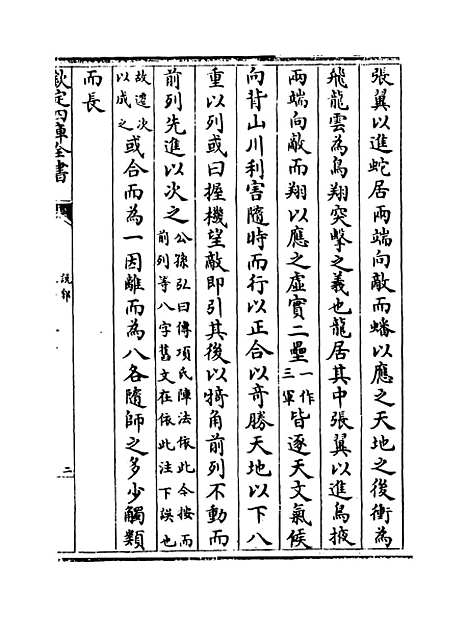 張翼以進蛇居兩端向敵而蟠以應之天地之後衝為
飛龍雲為鳥翔突擊之義也龍居其中張翼以進鳥掖
兩端向敵而翔以應之虛實二壘一作三軍皆逐天文氣候
向背山川利害隨時而行以正合以奇勝天地以下八
重以列或曰握機望敵即引其後以犄角前列不動而
前列先進以次之公孫弘曰傳項氏陣法依此今按而前列等八字舊文在依此注下誤也
故遷次以成之或合而為一因離而為八各隨師之多少觸類
而長
欽定四庫全書
說郛
二